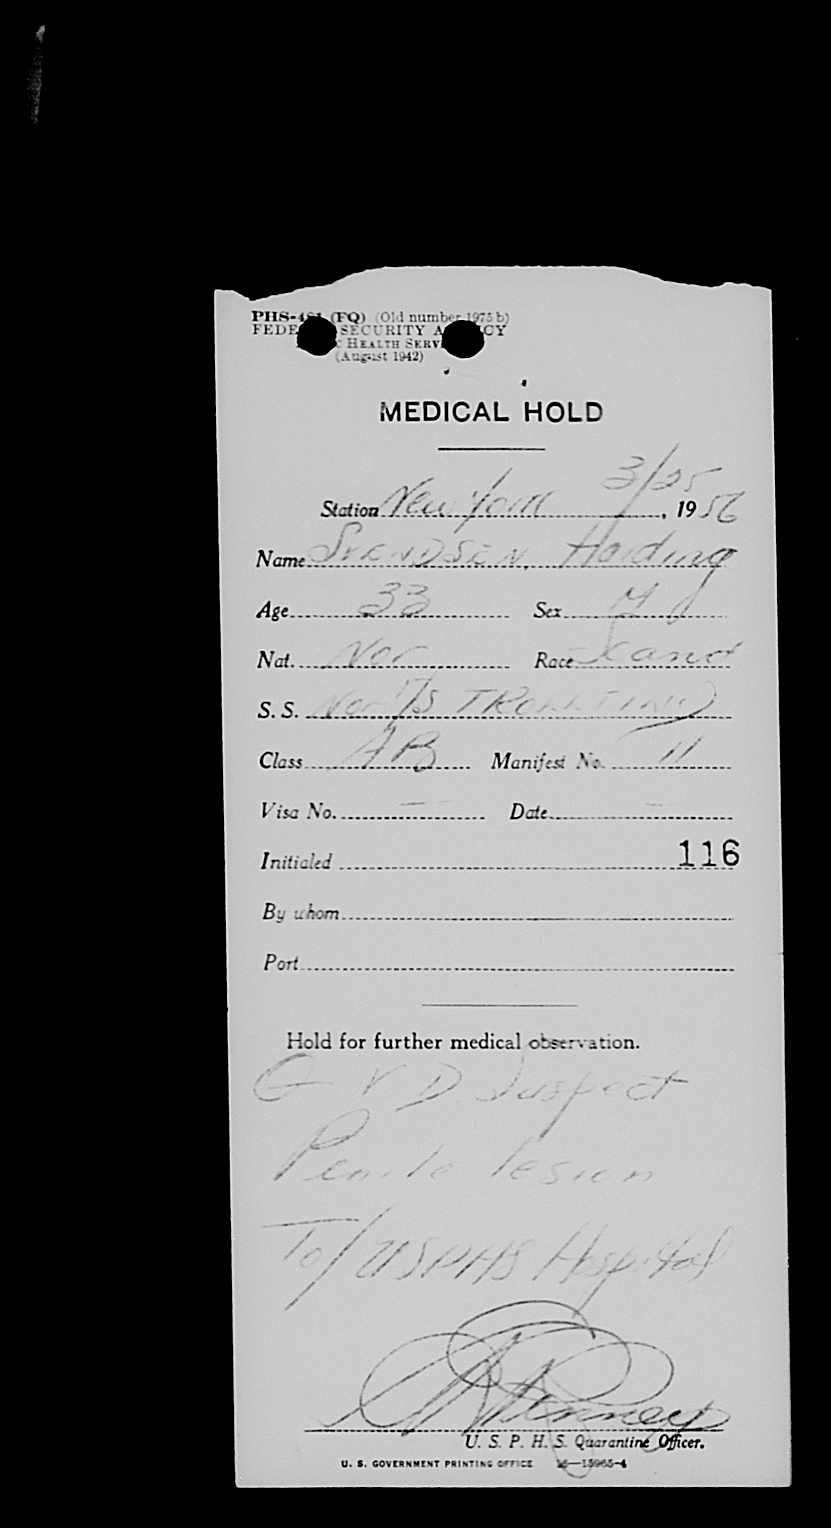 PHS-481 (FQ) (Old number 1975 b)
FEDERAL SECURITY AGENCY
PUBLIC HEALTH SERVICE
(August 1942)
MEDICAL HOLD
Station New York 3/25, 1956
Name SVENDSEN, Harding
Age 33 Sex M
Nat. Nor Race Scand
S. S. Nor M/S
Class AB Manifest No. 11
Visa No. — Date —
Initialed 116
By whom
Port
Hold for further medical observation.
V D Suspect
Penile lesion
To/ USPHS Hospital
U. S. P. H. S. Quarantine Officer.
U. S. GOVERNMENT PRINTING OFFICE 16—15965-4